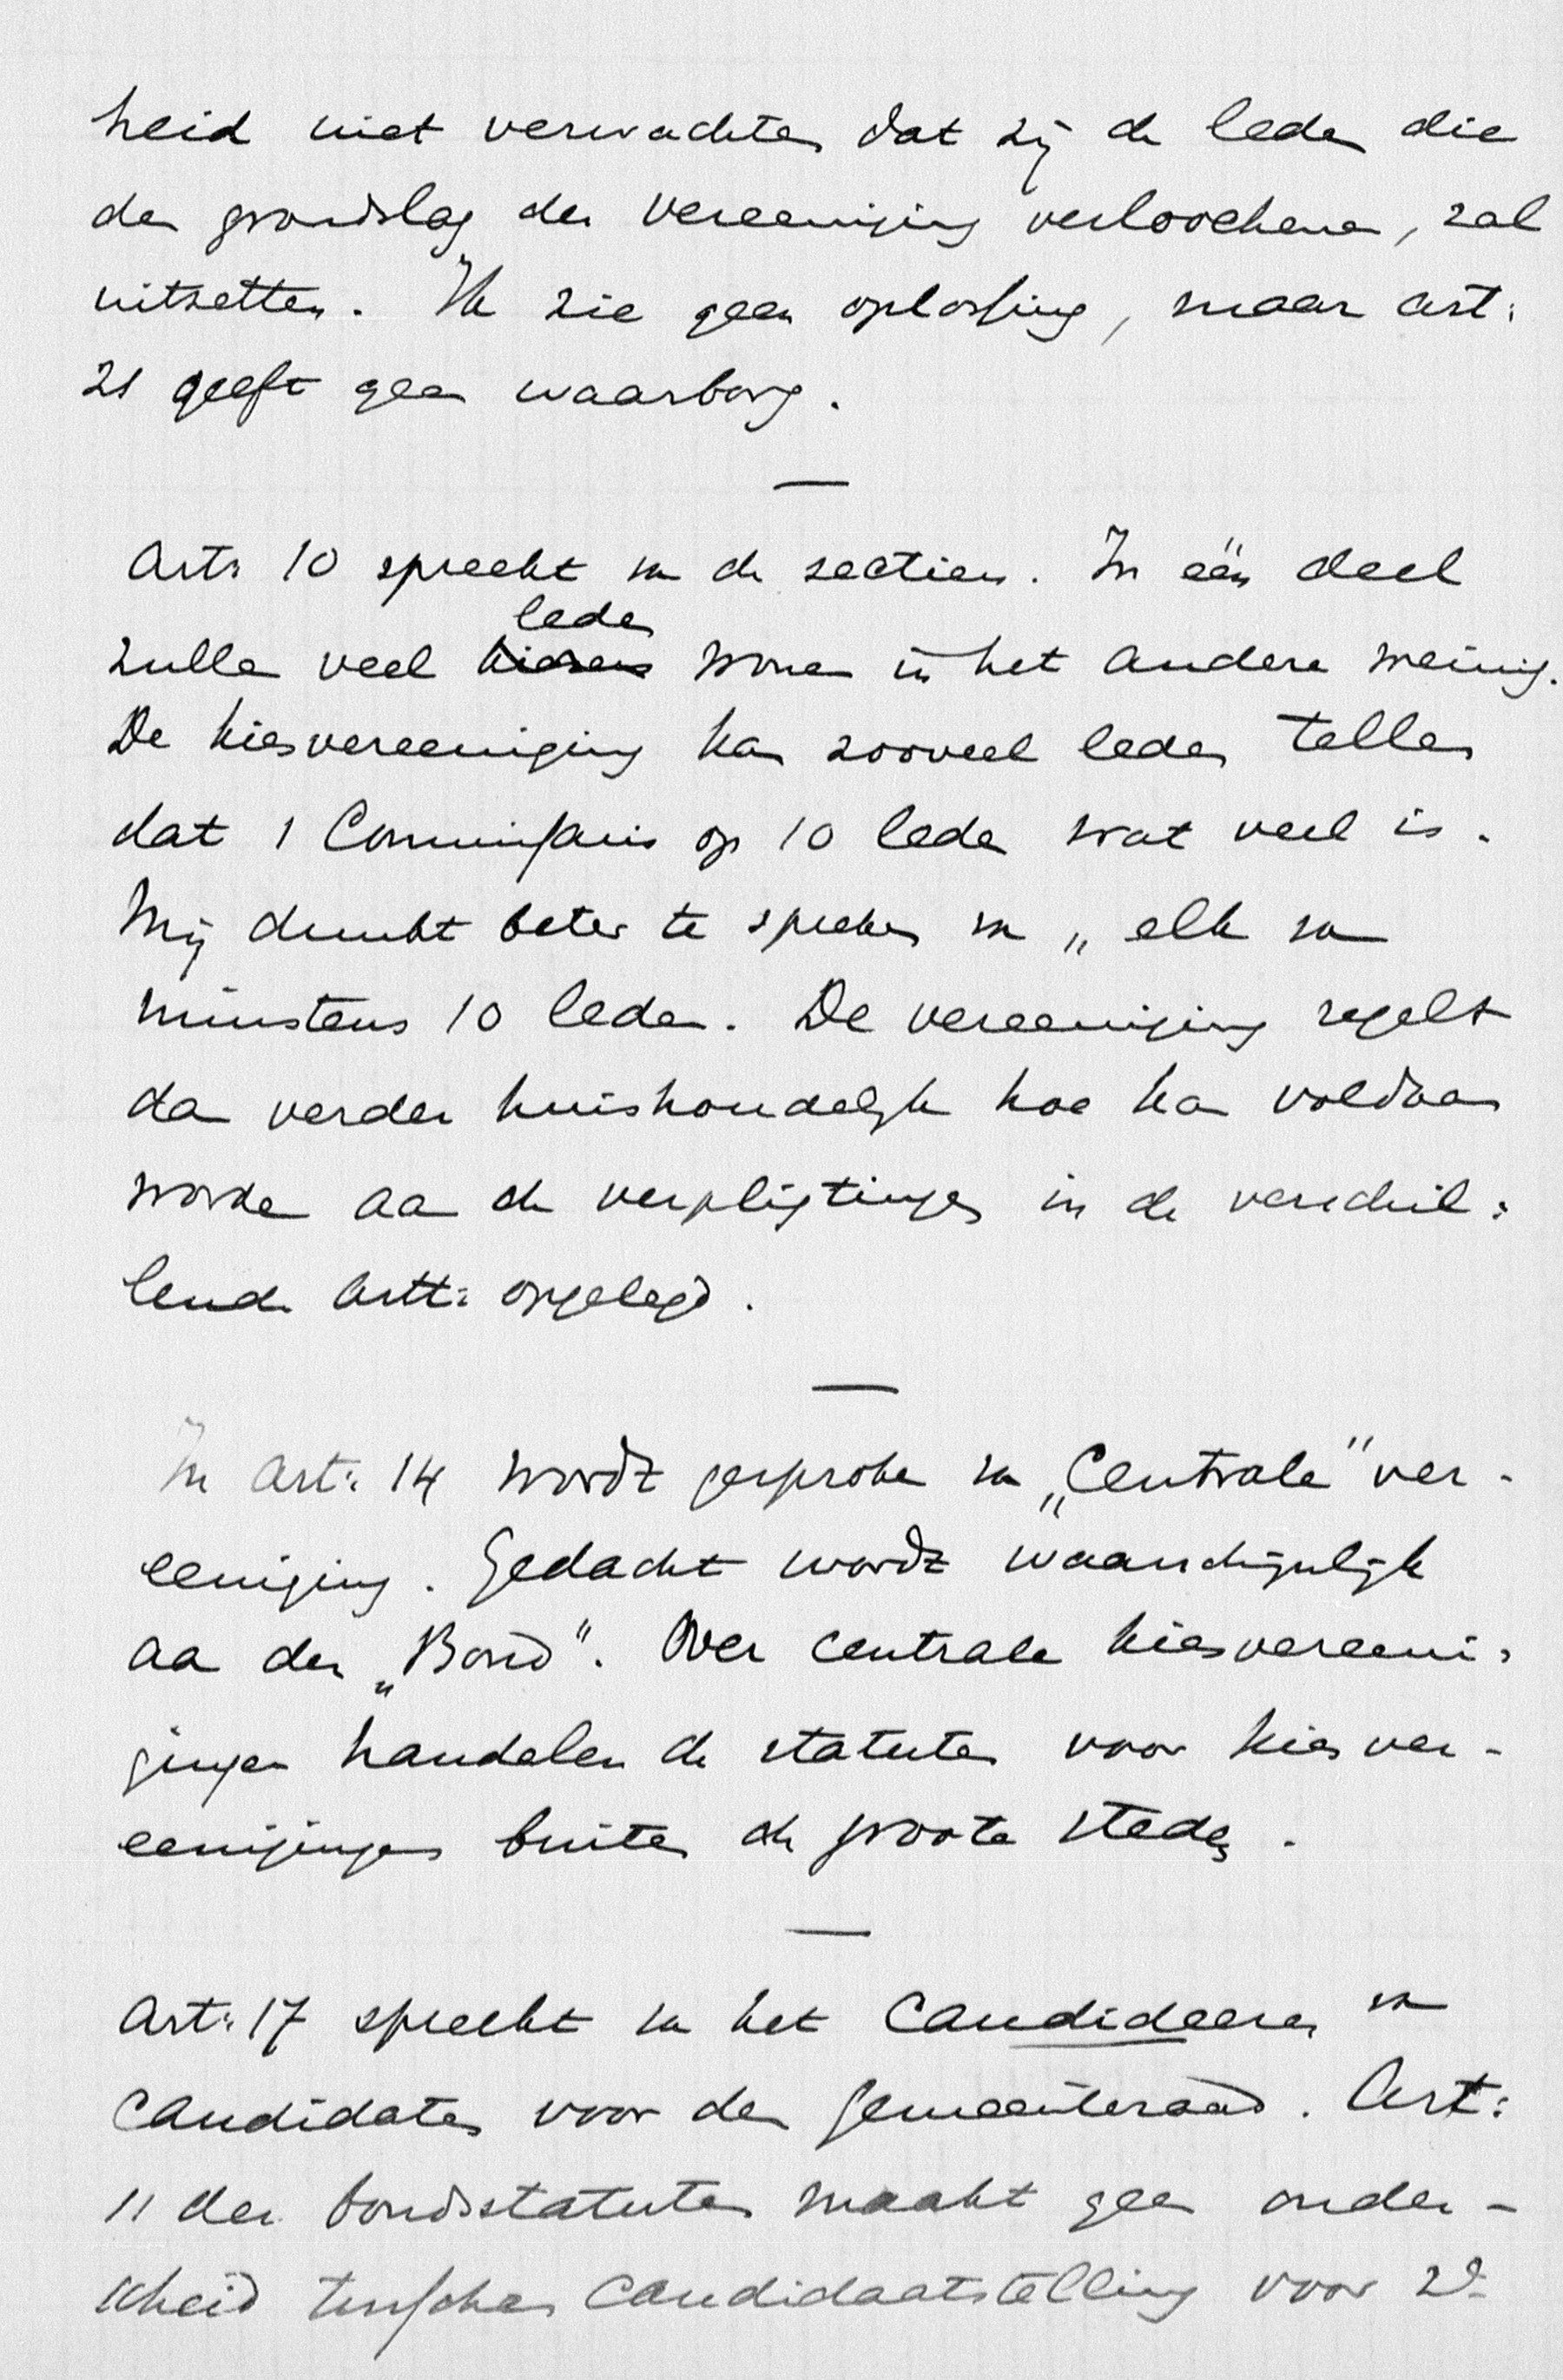 heid niet verwachten dat zij de leden die
den grondslag der vereeniging verloochenen, zal
uitzetten. Ik zie geen oplossing, maar art:
21 geeft geen waarborg.
Art: 10 spreekt van de sectien. In één deel
leden
zullen veel wonen in het andere weinig.
De kiesvereeniging kan zooveel leden tellen
dat 1 Commissaris op 10 leden wat veel is.
Mij dunkt beter te spreken van „elk van
minstens 10 leden. De vereeniging regelt
dan verder huishoudelijk hoe kan voldaan
worden aan de verpligtingen in de verschil:
lende Artt: opgelegd.
In Art: 14 wordt gesproken van „Centrale" ver-
eeniging. Gedacht wordt waarschijnlijk
aan den „Bond". Over centrale kiesvereeni:
gingen handelen de statuten voor kiesver-
eenigingen buiten de groote steden.
Art: 17 spreekt van het Candideeren van
Candidaten voor den gemeenteraad. Art:
11 der bondsstatuten maakt geen onder-
scheid tusschen Candidaatstelling voor 2e